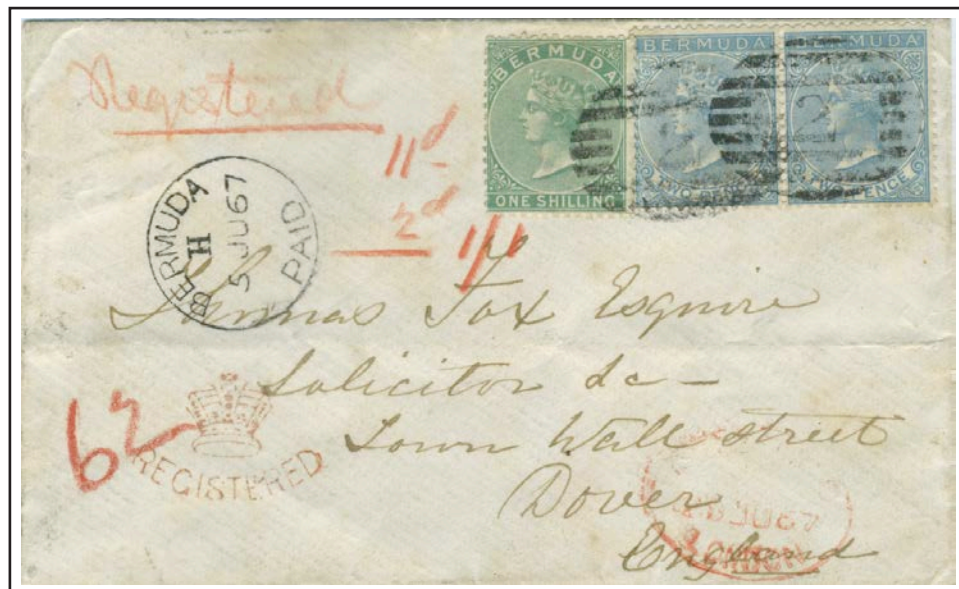 Registered
11d
2d
1/1
BERMUDA
ONE SHILLING
BERMUDA
TWO PENCE
BERMUDA
TWO PENCE
2
2
BERMUDA
H
5 JU 67
PAID
Thomas Fox Esquire
Solicitor &c –
Town Wall Street
Dover
England
62
REGISTERED
JU 67
LONDON